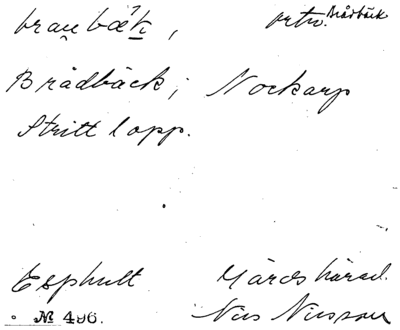 brau̯ bæ'k̲i̲, ortn. Brådbäck
Brådbäck; Nockarp
Stritt lopp.
Esphult Gärds härad.
№ 496. Nils Nilsson